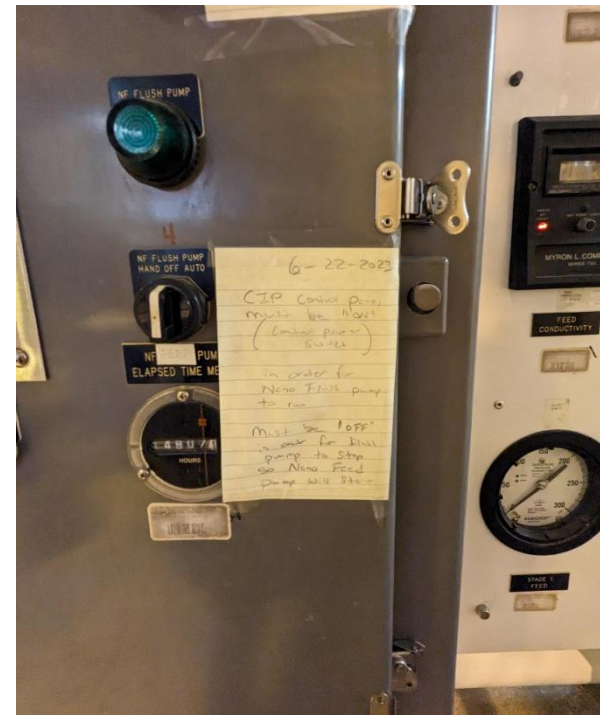 NF FLUSH PUMP
4
NF FLUSH PUMP
HAND OFF AUTO
NF FEED PUMP
ELAPSED TIME ME
HOURS
6-22-2023
CIP Control Panel
must be "on"
(Control power
Switch)
in order for
Nano Flush pump
to run
Must be "OFF"
in order for flush
pump to Stop
so Nano Feed
pump will Start
MYRON L COMP
FEED
CONDUCTIVITY
150
200
50
300
ASHCROFT
STAGE 1
FEED